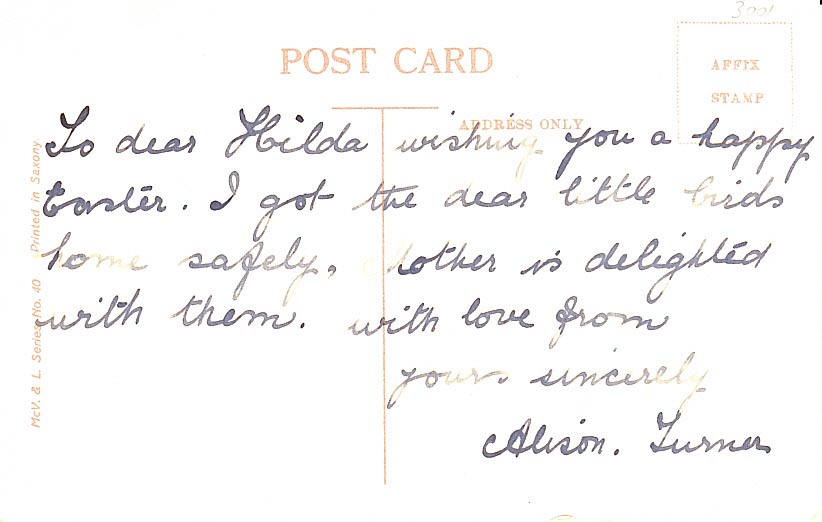 3001
POST CARD
AFFIX
STAMP
ADDRESS ONLY
To dear Hilda wishing you a happy
Easter. I got the dear little birds
home safely, Mother is delighted
with them. with love from
yours sincerely
Alison. Turner
McV. & L. Series No. 40 Printed in Saxony